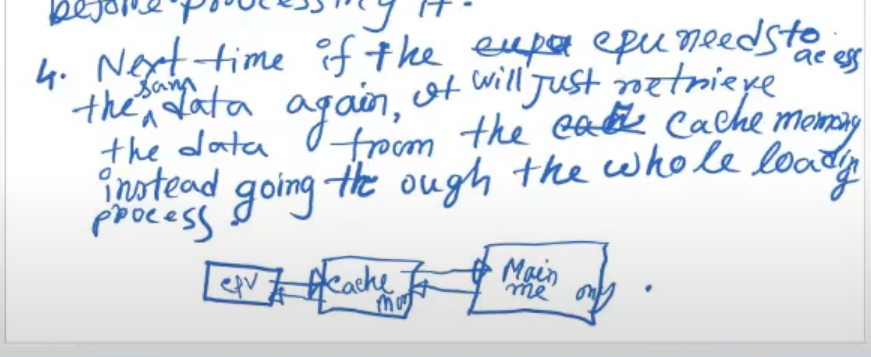 before processing it.
4. Next time if the cpu needs to acess
the sam data again, it will just retrieve
the data from the cache memory
instead going through the whole loading
process
cpu Cache mm Main memory